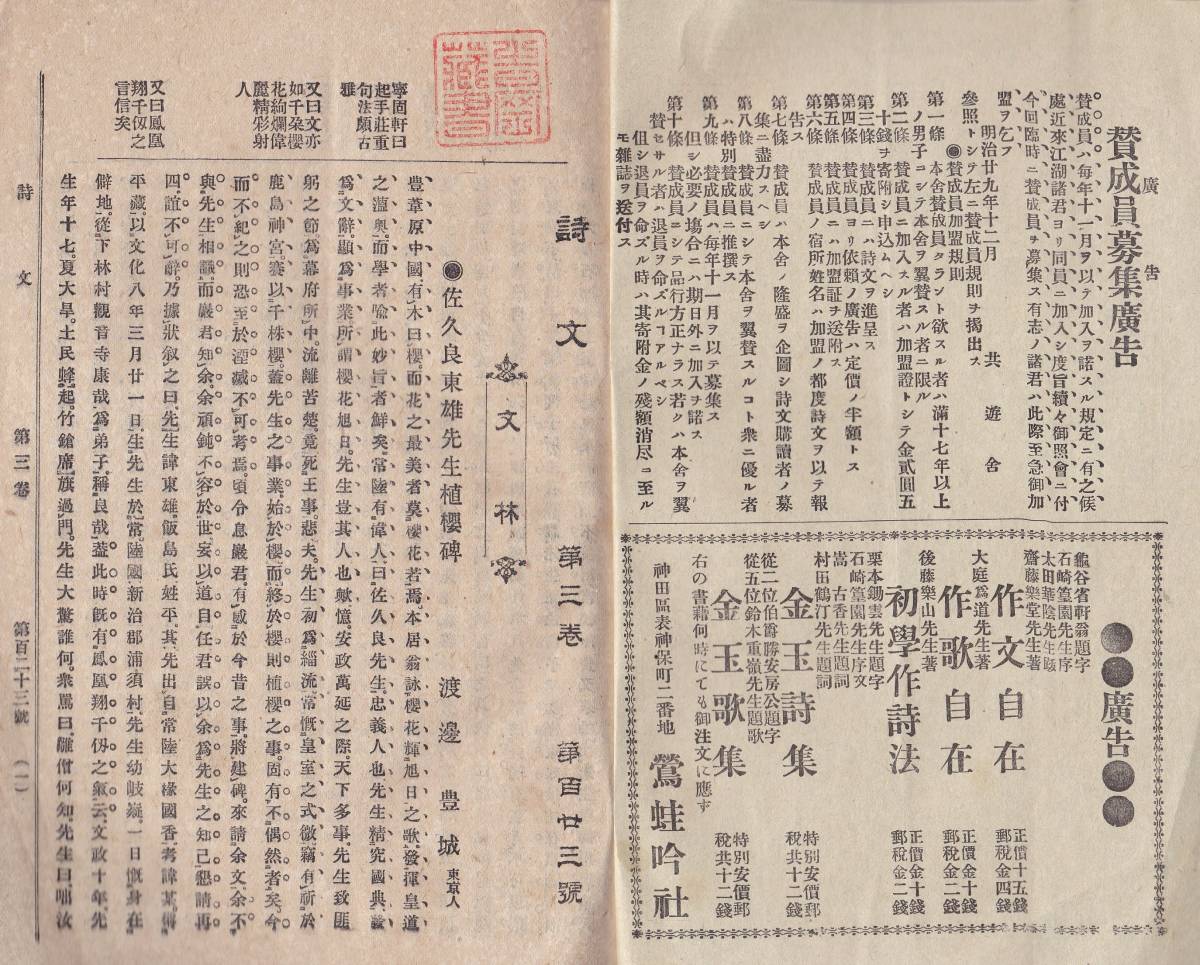 廣告
賛成員募集廣告
賛成員ハ毎年十一月ヲ以テ加入ヲ諾スル規定ニ有之候
處近來江湖諸君ヨリ同員ニ加入シ度旨續々御照會ニ付
今回臨時ニ賛成員ヲ募集ス有志ノ諸君ハ此際至急御加
盟ヲ乞フ
明治廿九年十二月 共遊舍
參照トシテ左ニ賛成員規則ヲ掲出ス
●賛成員加盟規則
第一條 本舍賛成員タラント欲スル者ハ滿十七年以上
ノ男子ニシテ本舍ヲ翼賛スル者ニ限ル
第二條 賛成員ニ加入スル者ハ加盟證トシテ金貳圓五
十錢ヲ寄附シ申込ムヘシ
第三條 賛成員ニハ詩文ヲ進呈ス
第四條 賛成員ヨリ依頼ノ廣告ハ定價ノ半額トス
第五條 賛成員ニハ加盟証ヲ送附ス
第六條 賛成員ノ宿所姓名ハ加盟ノ都度詩文ヲ以テ報
告ス
第七條 賛成員ハ本舍ノ隆盛ヲ企圖シ詩文購讀者ノ募
集ニ盡力スヘシ
第八條 賛成員ニシテ本舍ヲ翼賛スルコト衆ニ優ル者
ハ特別賛成員ニ推撰ス
第九條 賛成員ハ毎年十一月ヲ以テ募集ス
但シ必要ノ塲合ニハ期日外ニ加入ヲ諾ス
第十條 賛成員ニシテ品行方正ナラス若クハ本舍ヲ翼
賛セサル者ハ退員ヲ命ズルコアルベシ
但シ退員ヲ命ズル時ハ其寄附金ノ殘額消尽ニ至ル
モ雜誌ヲ送付ス
●●廣告●●
龜谷省軒翁題字
石崎篁園先生序
太田華陰先生題
齋藤樂堂先生著
作文自在 正價十五錢 郵税金四錢
大庭爲道先生著
作歌自在 正價金十錢 郵税金二錢
後藤樂山先生著
初學作詩法 正價金十錢 郵税金二錢
栗本鋤雲先生題字
石崎篁園先生序文
嵩古香先生題詞
村田鶴汀先生題詞
金玉詩集 特別安價郵税共十二錢
從二位伯爵勝安房公題字
從五位鈴木重嶺先生題歌
金玉歌集 特別安價郵税共十二錢
右の書藉何時にても御注文に應ず
神田區表神保町二番地 鶯蛙吟社
詩文 第三卷 第百廿三號
文林
●佐久良東雄先生植櫻碑
渡邊豊城 東京人
豊葦原中國有木曰櫻。而花之最美者莫櫻花若焉。本居翁詠櫻花輝旭日之歌。發揮皇道
之薀奥。而學者喩此妙旨者鮮矣。常陸有偉人。曰佐久良先生。忠義人也。先生精究國典。
爲文辭。顯爲事業。所謂櫻花旭日。先生豈其人也歟。憶。安政萬延之際。天下多事。先生致匪
躬之節。爲幕府所中。流離苦楚。竟死王事。悲夫。先生初爲緇流。常慨皇室之式微。竊有祈於
鹿島神宮。賽以千株櫻。蓋先生之事業。始於櫻而終於櫻。則植櫻之事。固有不偶然者矣。今
而不紀之。則恐至於湮滅不可考焉。頃令息嚴君。有感於今昔之事。將建碑。來請余文。余不
與先生相識。而嚴君知余。余頑鈍不容於世。妄以道自任。君誤以余爲先生之知己。懇請再
四。誼不可辭。乃據狀叙之曰。先生諱東雄。飯島氏。姓平。其先出自常陸大椽國香。考諱某
平藏。以文化八年三月廿一日。生先生於常陸國新治郡浦須村。先生幼岐嶷。一日慨身在
僻地。從下林村觀音寺康哉爲弟子。稱良哉。蓋此時既有鳳凰翔千仭之氣云。文政十年。先
生年十七。夏大旱。土民蜂起。竹鎗席旗過門。先生大驚誰何。衆罵曰。雛僧何知。先生曰。咄汝
寧固軒曰
起手莊重
句法頗古
雅
又曰文亦
如千朶櫻
花絢爛偉
麗精彩射
人
又曰鳳凰
翔千仭之
言信矣
詩文 第三卷 第百二十三號 (一)